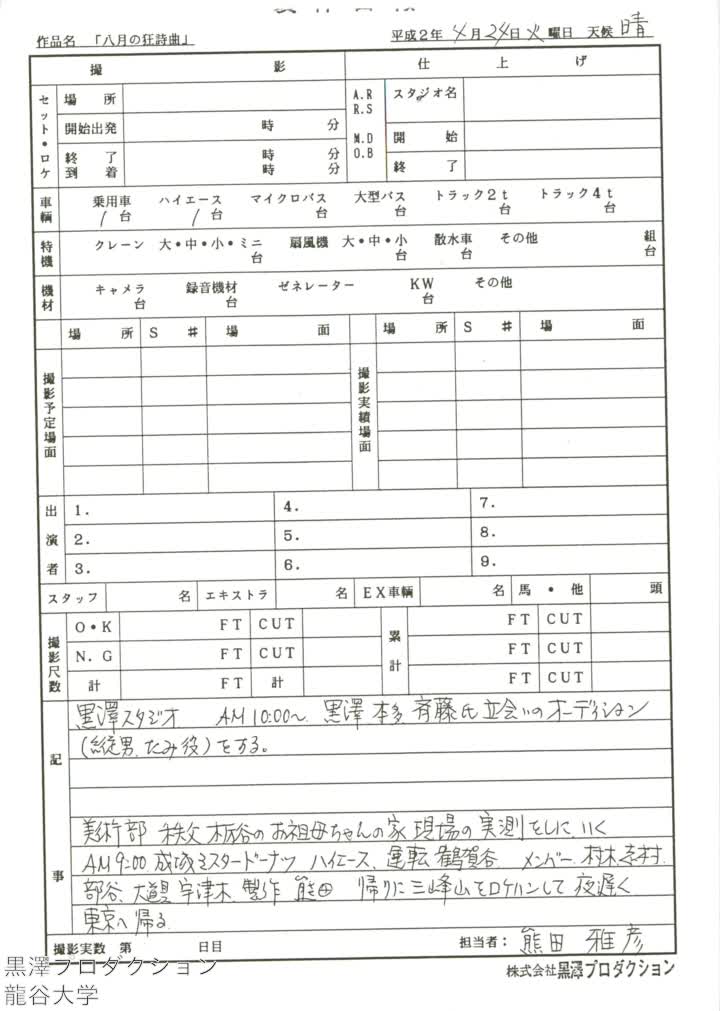 作品名 「八月の狂詩曲」 平成2年 4月24日 火曜日 天候 晴
撮 影 仕 上 げ
セット・ロケ 場 所 A.R R.S M.D O.B スタジオ名
開始出発 時 分 開 始
終 了 時 分 終 了
到 着 時 分
車輌 乗用車 ハイエース マイクロバス 大型バス トラック2t トラック4t
1台 1台 台 台 台 台
特機 クレーン 大・中・小・ミニ 扇風機 大・中・小 散水車 その他 組
台 台 台 台
機材 キャメラ 録音機材 ゼネレーター KW その他
台 台 台
場 所 S # 場 面 場 所 S # 場 面
撮影予定場面 撮影実績場面
出演者 1. 4. 7.
2. 5. 8.
3. 6. 9.
スタッフ 名 エキストラ 名 EX車輌 名 馬・他 頭
撮影尺数 O・K FT CUT 累計 FT CUT
N.G FT CUT FT CUT
計 FT 計 FT CUT
記事
黒澤スタジオ AM10:00〜 黒澤 本多 斉藤氏立会いのオーディション
(縦男、たみ役)をする。
美術部 秩父 栃谷のお祖母ちゃんの家 現場の実測をしに、いく
AM9:00 成城ミスタードーナツ ハイエース、運転 鶴賀谷 メンバー 村木 志村
部谷、大道具 宇津木 製作 熊田 帰りに三峰山をロケハンして夜遅く
東京へ帰る
撮影実数 第 日目 担当者: 熊田 雅彦
株式会社黒澤プロダクション
黒澤プロダクション
龍谷大学